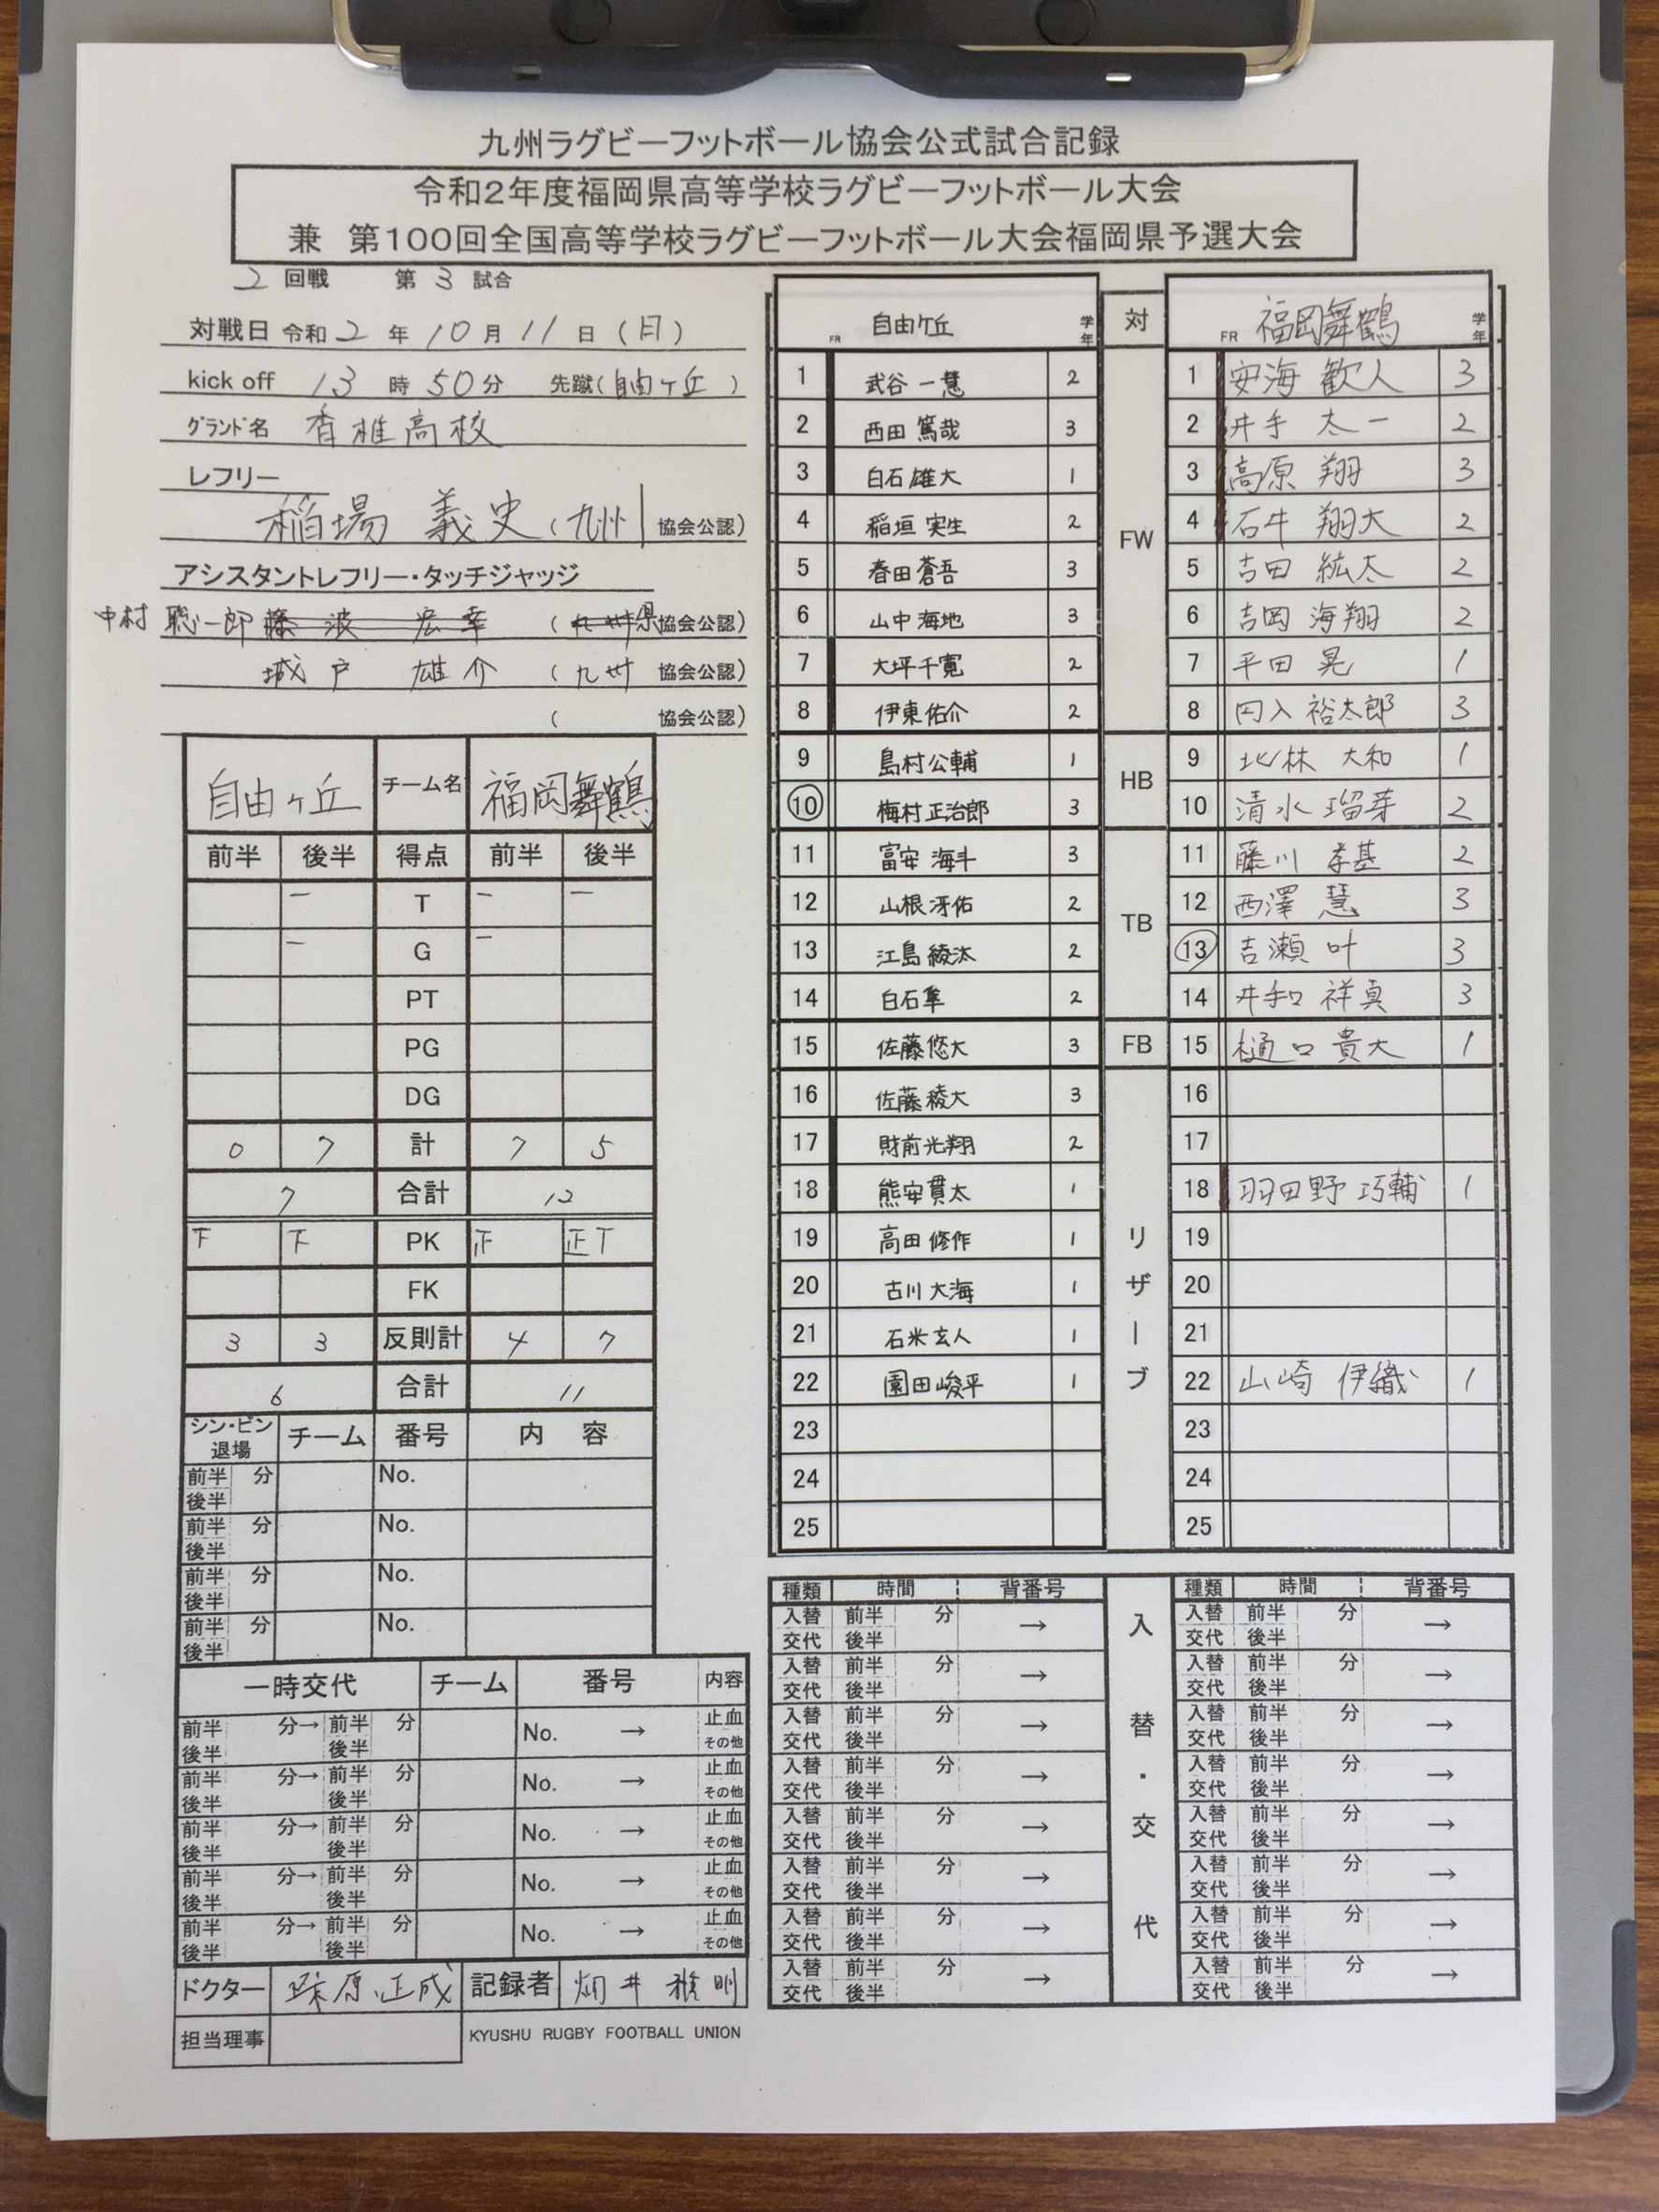 九州ラグビーフットボール協会公式試合記録
令和2年度福岡県高等学校ラグビーフットボール大会
兼 第100回全国高等学校ラグビーフットボール大会福岡県予選大会
2 回戦 第 3 試合
対戦日 令和 2 年 10 月 11 日 (日)
kick off 13 時 50 分 先蹴(自由ヶ丘)
グランド名 香椎高校
レフリー
稲場 義史 (九州 協会公認)
アシスタントレフリー・タッチジャッジ
中村 聡一郎 藤波 宏幸 (九州 県 協会公認)
城戸 雄介 (九州 協会公認)
( 協会公認)
自由ヶ丘 チーム名 福岡舞鶴
前半 後半 得点 前半 後半
一 T 一 一
一 G 一
PT
PG
DG
0 7 計 7 5
7 合計 12
下 下 PK 正 正丅
FK
3 3 反則計 4 7
6 合計 11
シン・ビン 退場 チーム 番号 内 容
前半 後半 分 No.
前半 後半 分 No.
前半 後半 分 No.
前半 後半 分 No.
一時交代 チーム 番号 内容
前半 後半 分→ 前半 後半 分 No. → 止血 その他
前半 後半 分→ 前半 後半 分 No. → 止血 その他
前半 後半 分→ 前半 後半 分 No. → 止血 その他
前半 後半 分→ 前半 後半 分 No. → 止血 その他
前半 後半 分→ 前半 後半 分 No. → 止血 その他
ドクター 原 正成 記録者 井 雅明
担当理事
KYUSHU RUGBY FOOTBALL UNION
FR 自由ケ丘 学年 対 FR 福岡舞鶴 学年
1 武谷 一慧 2 1 安海 歓人 3
2 西田 篤哉 3 2 井手 太一 2
3 白石雄大 1 3 高原 翔 3
4 稲垣 実生 2 FW 4 石井 翔大 2
5 春田蒼吾 3 5 吉田 紘太 2
6 山中海地 3 6 吉岡 海翔 2
7 大坪千寛 2 7 平田 晃 1
8 伊東佑介 2 8 円入 裕太郎 3
9 島村公輔 1 HB 9 北林 大和 1
10 梅村正治郎 3 10 清水 瑠芽 2
11 富安 海斗 3 11 藤川 孝基 2
12 山根冴佑 2 TB 12 西澤 慧 3
13 江島綾汰 2 13 吉瀬 叶 3
14 白石隼 2 14 井和 祥真 3
15 佐藤悠大 3 FB 15 樋口 貴大 1
16 佐藤稜大 3 リザーブ 16
17 財前光翔 2 17
18 熊安貫太 1 18 羽田野 巧輔 1
19 高田修作 1 19
20 古川大海 1 20
21 石米玄人 1 21
22 園田峻平 1 22 山崎 伊織 1
23 23
24 24
25 25
種類 時間 背番号 入替・交代 種類 時間 背番号
入替 交代 前半 後半 分 → 入替 交代 前半 後半 分 →
入替 交代 前半 後半 分 → 入替 交代 前半 後半 分 →
入替 交代 前半 後半 分 → 入替 交代 前半 後半 分 →
入替 交代 前半 後半 分 → 入替 交代 前半 後半 分 →
入替 交代 前半 後半 分 → 入替 交代 前半 後半 分 →
入替 交代 前半 後半 分 → 入替 交代 前半 後半 分 →
入替 交代 前半 後半 分 → 入替 交代 前半 後半 分 →
入替 交代 前半 後半 分 → 入替 交代 前半 後半 分 →